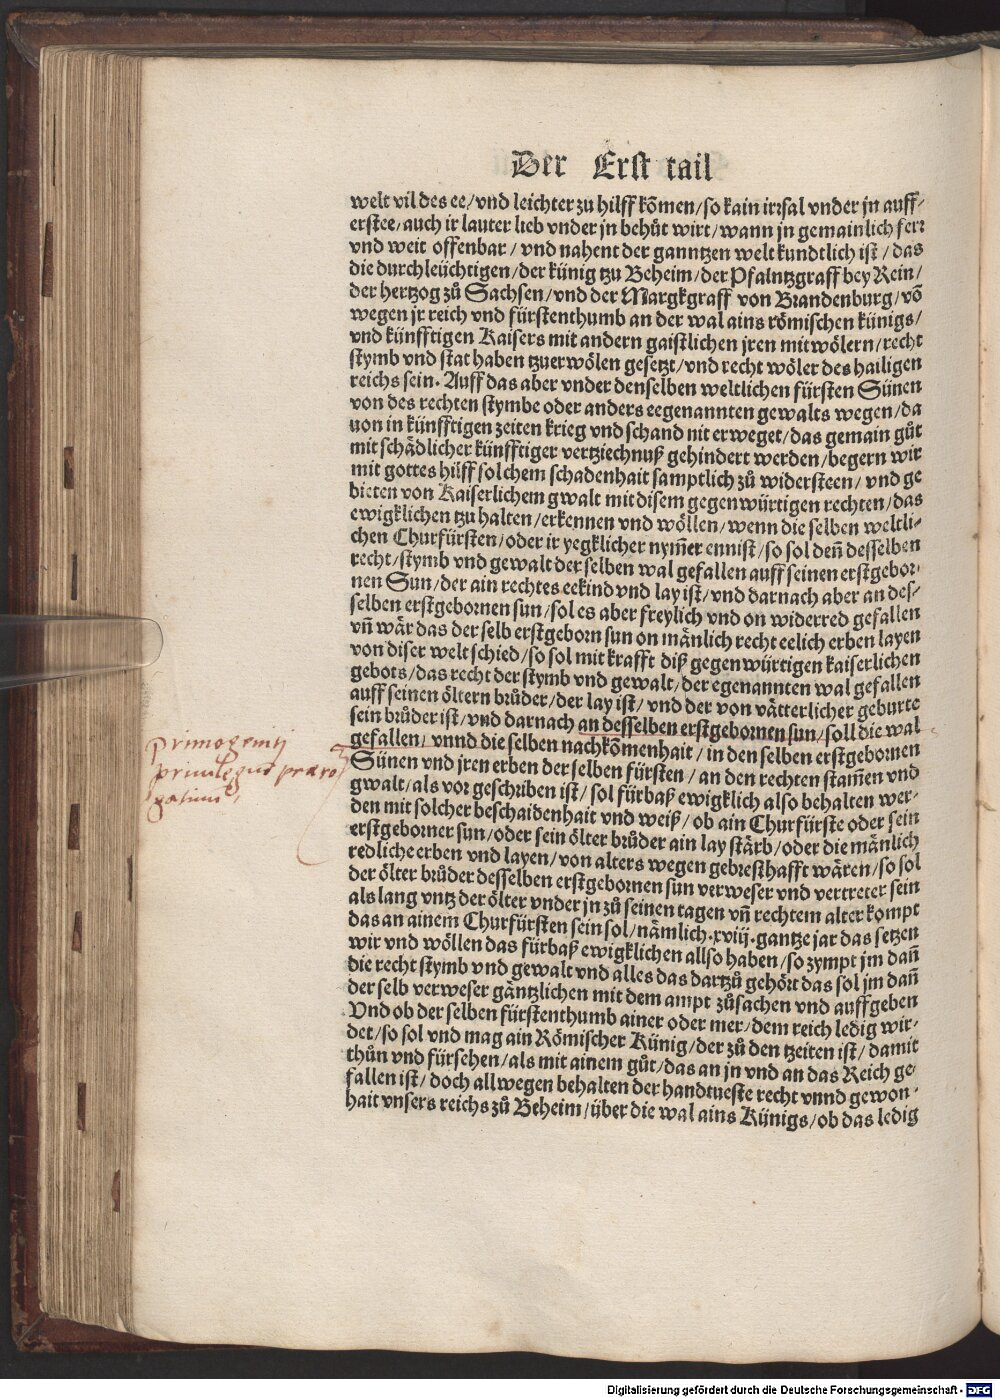 Der Erst tail
welt vil des ee/vnd leichter zu hilff kōmen/so kain irrsal vnder jn auff-
erstee/auch ir lauter lieb vnder jn behüt wirt/wann jn gemainlich ferr
vnd weit offenbar/vnd nahent der ganntzen welt kundtlich ist/das
die durchleüchtigen/der künig tzu Beheim/der Pfalntzgraff bey Rein/
der hertzog zů Sachsen/vnd der Margkgraff von Brandenburg/vō
wegen jr reich vnd fürstenthumb an der wal ains römischen künigs/
vnd künfftigen Kaisers mit andern gaistlichen jren mitwölern/recht
stymb vnd stat haben tzuerwölen gesetzt/vnd recht wöler des hailigen
reichs sein. Auff das aber vnder denselben weltlichen fürsten Sünen
von des rechten stymbe oder anders eegenannten gewalts wegen/da
uon in künfftigen zeiten krieg vnd schand nit erweget/das gemain gůt
mit schädlicher künfftiger vertziechnuß gehindert werden/begern wir
mit gottes hilff solchem schadenhait samptlich zů widersteen/vnd ge
bieten von Kaiserlichem gwalt mit disem gegenwürtigen rechten/das
ewigklichen tzu halten/erkennen vnd wöllen/wenn die selben weltli-
chen Churfürsten/oder ir yegklicher nym̄er ennist/so sol deñ desselben
recht/stymb vnd gewalt der selben wal gefallen auff seinen erstgebor-
nen Sun/der ain rechtes eekind vnd lay ist/vnd darnach aber an des-
selben erstgebornen sun/sol es aber freylich vnd on widerred gefallen
vñ wär das der selb erstgeborn sun on mänlich recht eelich erben layen
von diser welt schied/so sol mit krafft diß gegenwürtigen kaiserlichen
gebots/das recht der stymb vnd gewalt/der egenannten wal gefallen
auff seinen öltern brůder/der lay ist/vnd der von vätterlicher geburte
sein brůder ist/vnd darnach an desselben erstgebornen sun/soll die wal
gefallen/vnnd die selben nachkōmenhait/in den selben erstgebornen
Sünen vnd jren erben der selben fürsten/an den rechten stam̄en vnd
gwalt/als vor geschriben ist/sol fürbaß ewigklich also behalten wer-
den mit solcher beschaidenhait vnd weiß/ob ain Churfürste oder sein
erstgeborner sun/oder sein ölter brůder ain lay stärb/oder die mänlich
redliche erben vnd layen/von alters wegen gebresthafft wären/so sol
der ölter brůder desselben erstgebornen sun verweser vnd vertreter sein
als lang vntz der ölter vnder jn zů seinen tagen vñ rechtem alter kompt
das an ainem Churfürsten sein sol/nämlich.xviij.gantze jar das setzen
wir vnd wöllen das fürbaß ewigklichen allso haben/so zympt jm dañ
die recht stymb vnd gewalt vnd alles das dartzů gehört das sol jm dañ
der selb verweser gäntzlichen mit dem ampt zůsachen vnd auffgeben
Vnd ob der selben fürstenthumb ainer oder mer/dem reich ledig wir-
det/so sol vnd mag ain Römischer Künig/der zů den tzeiten ist/damit
thůn vnd fürsehen/als mit ainem gůt/das an jn vnd an das Reich ge
fallen ist/doch allwegen behalten der handtueste recht vnnd gewon-
hait vnsers reichs zů Beheim/über die wal ains Künigs/ob das ledig
primogenitj
Digitalisierung gefördert durch die Deutsche Forschungsgemeinschaft - DFG